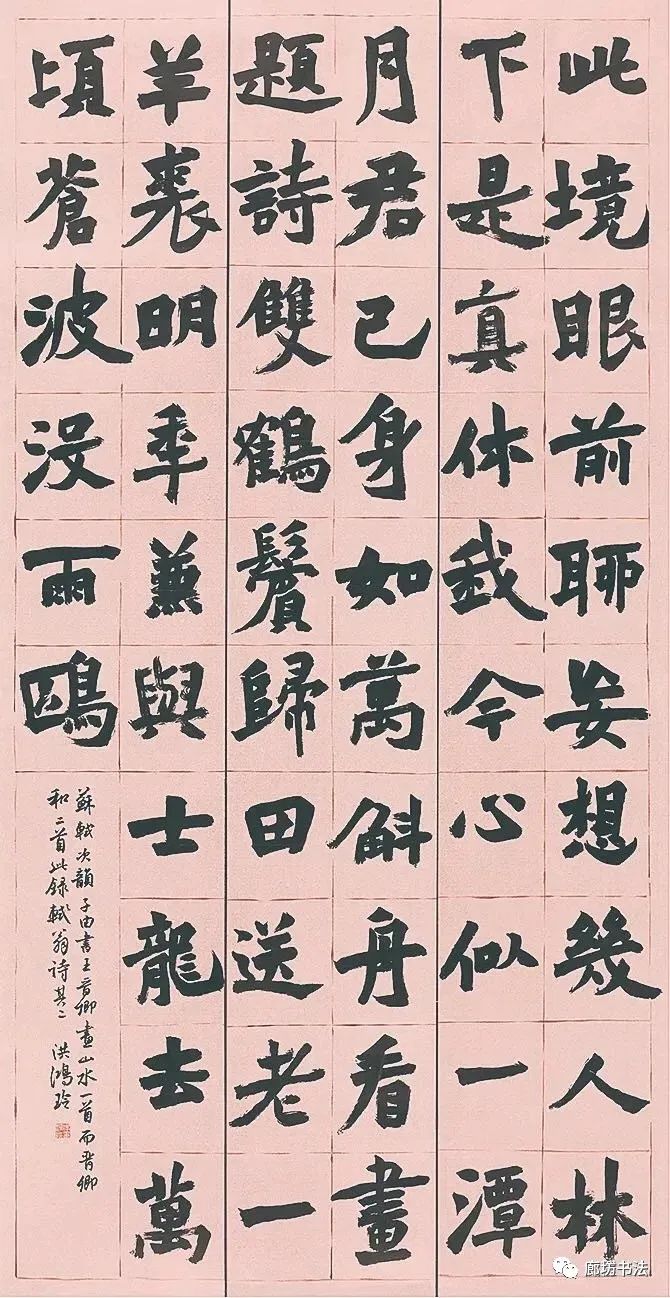 此境眼前聊妄想幾人林
下是真休我今心似一潭
月君已身如萬斛舟看畫
題詩雙鶴鬢歸田送老一
羊裘明年兼與士龍去萬
頃蒼波沒兩鷗
蘇軾次韻子由書王晉卿畫山水一首而晉卿
和二首此錄軾翁詩其二 洪鴻玲
廊坊书法